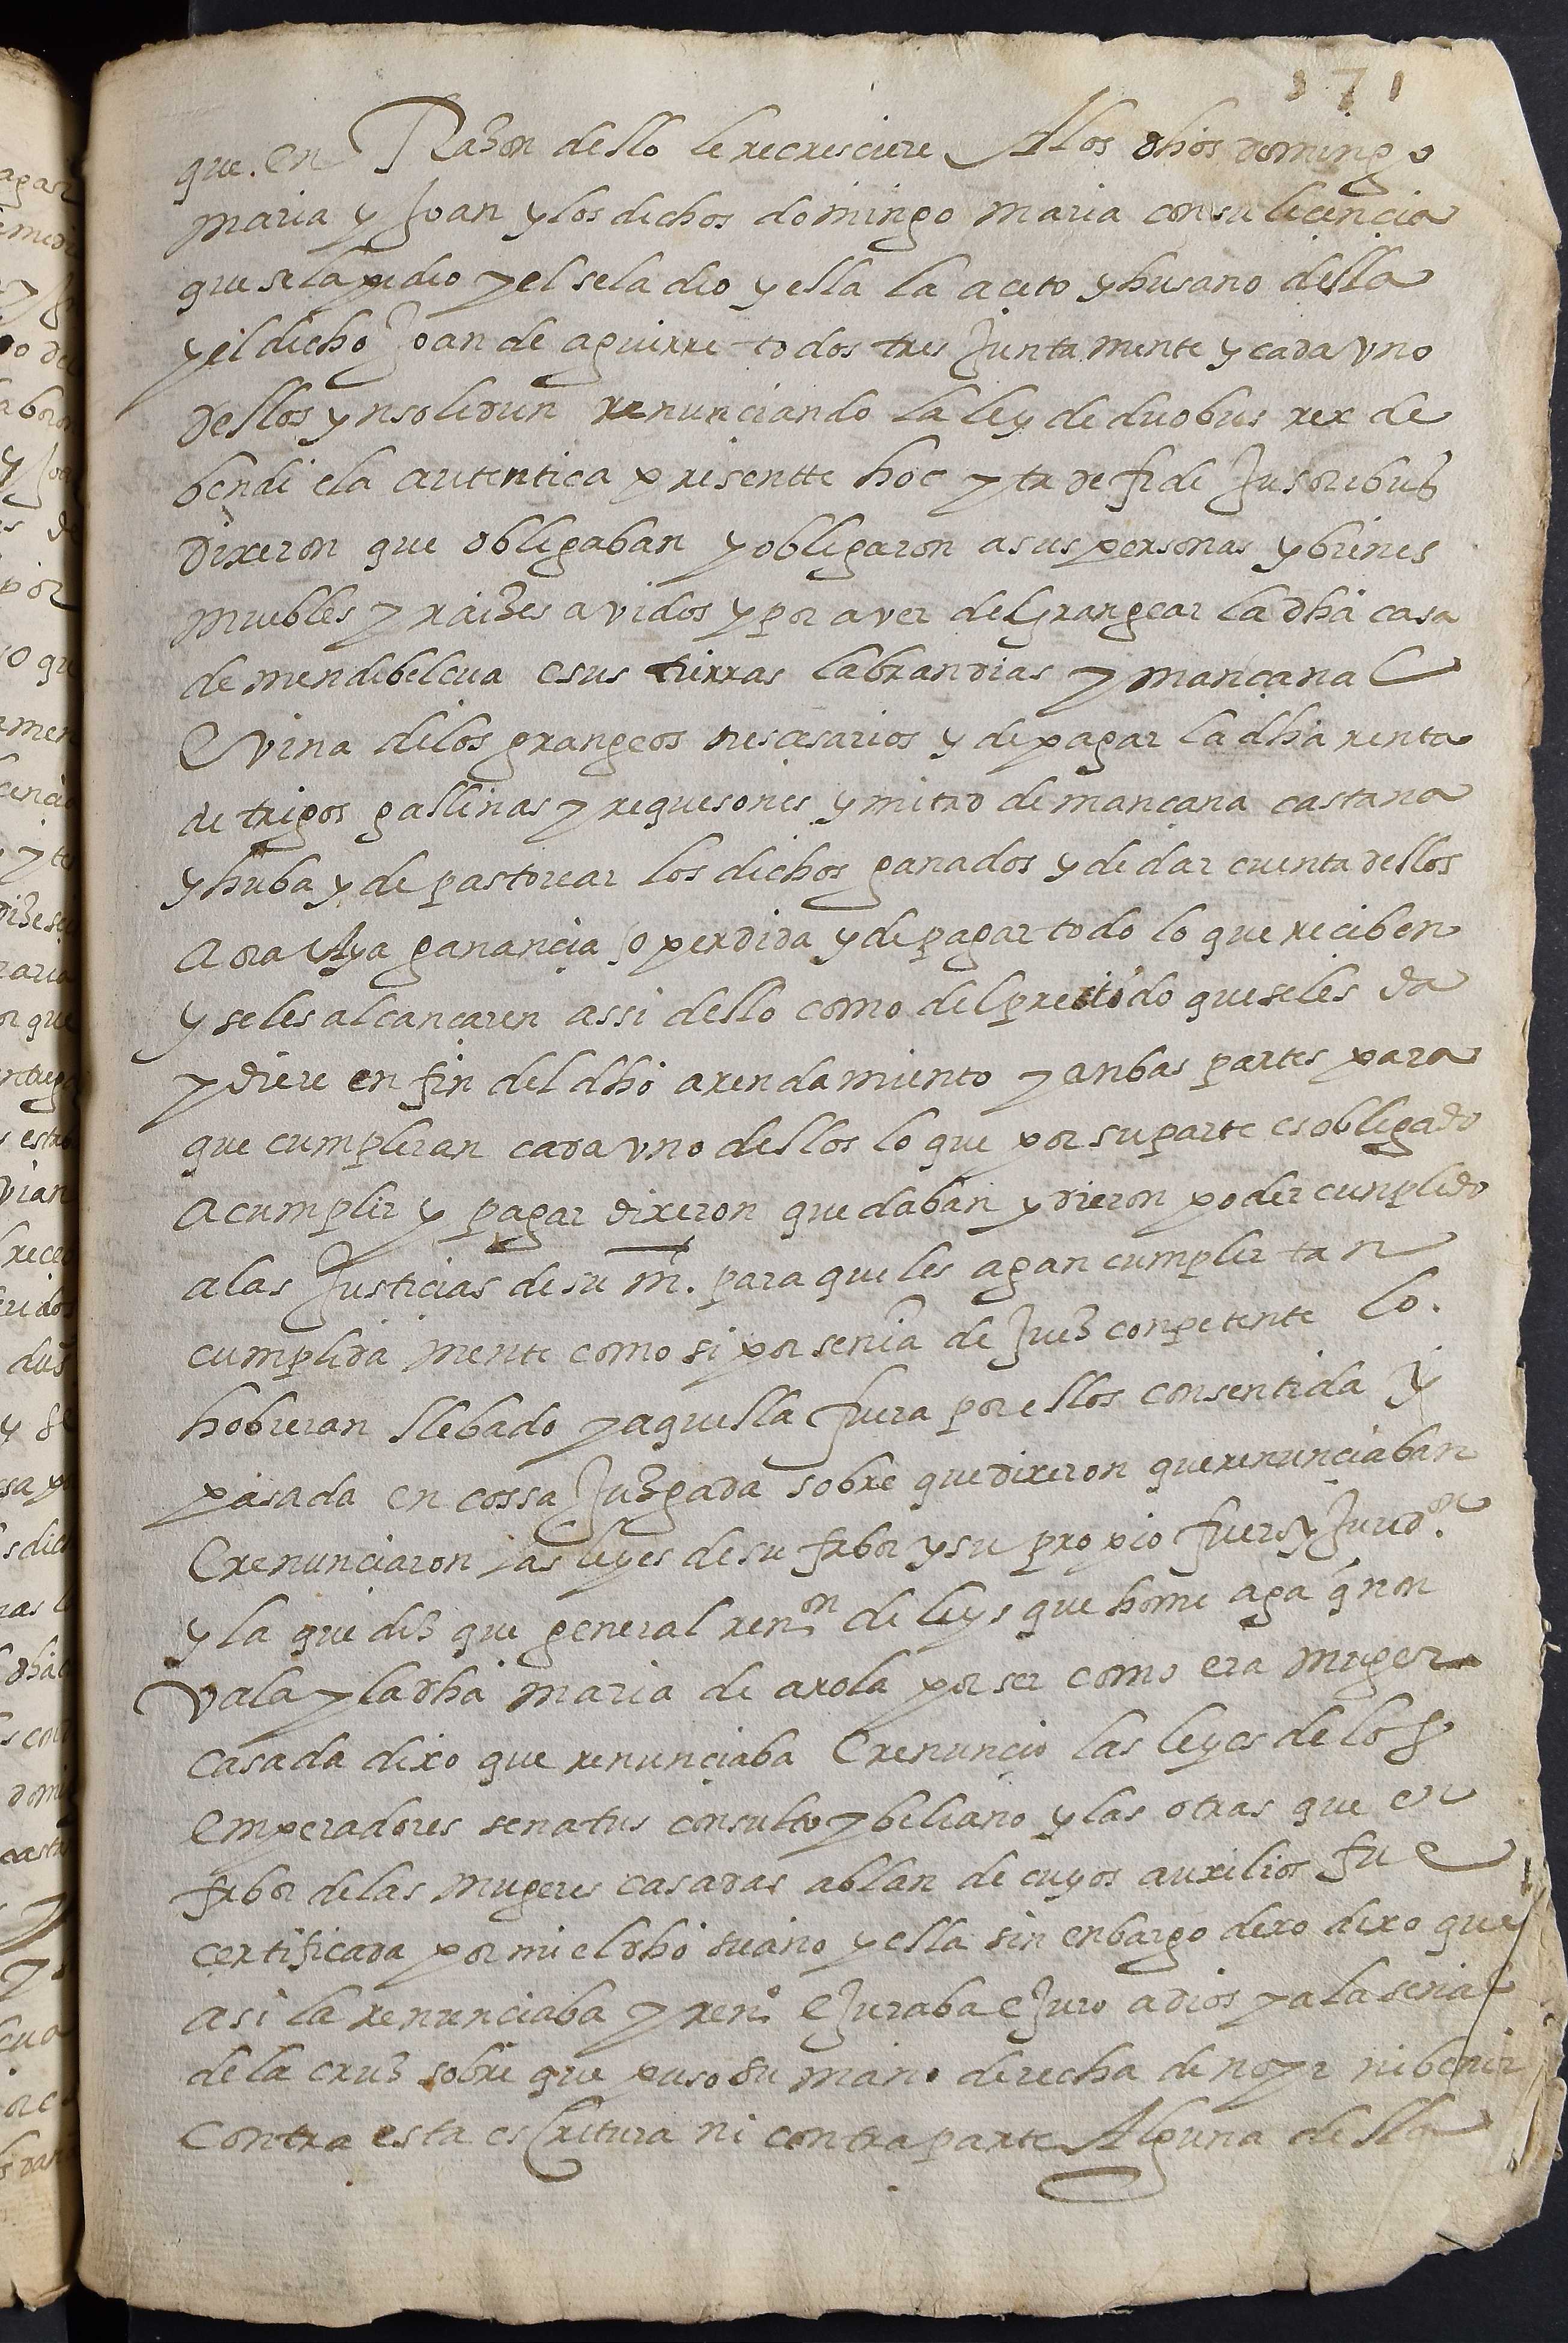 171
que. en Razon dello le recresciere A los dhos domingo
maria y Joan y los dichos domingo maria con su licencia
que se la pidio y el se la dio y ella la aceto y husano della
y el dicho Joan de aguirre todos tres Junta mente y cada uno
dellos ynsolidun renunciando la ley de duobus rex de
bendi e la autentica presentte hoc yta de fide Jusoribus
dixeron que obligaban y obligaron a sus personas y bienes
muebles y raizes avidos y por aver de grangear la dha casa
de mendibelcua e sus tierras labrandias y mançanal
E vina de los grangeos nescesarios y de pagar la dha renta
de trigos gallinas y requesones y mitad de mançana castana
y huba y de pastorear los dichos ganados y de dar cuenta dellos
Aora Aya ganancia o perdida y de pagar todo lo que reciben
y se les alcançaren assi dello como del prestido que se les da
y diere en fin del dho arendamiento y anbas partes para
que cumpliran cada uno dellos lo que por su parte es obligado
A cumplir y pagar dixeron que daban y dieron poder cunplido
a las Justicias de su m. para que les agan cumplir tan
cumplida mente como si por senia de Juez conpetente lo.
hobieran llebado y aquella fuera por ellos consentida y
pasada en cossa Juzgada sobre que dixeron que renunciaban
E renunciaron las leyes de su fabor y su propio fuero y Jurid.on
y la que diz que general ren.on de leys que home aga q non
vala y la dha maria de arola por ser como era muger
casada dixo que renunciaba E renuncio las leyes de los
emperadores senatus consulto y beliano y las otras que en
fabor de las mugeres casadas ablan de cuyos auxilios fue
certificada por mi el dho svano y ella sin enbargo dixo dixo que
asi la renunciaba y ren.o E Juraba E Juro a dios y a la senal
de la cruz sobre que puso su mano derecha de no yr ni benir
contra esta escritura ni contra parte Alguna della